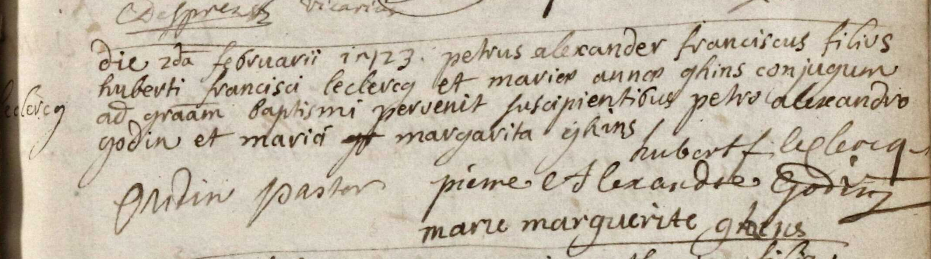 Desprez vicarius
die 2da februarii 1723. petrus alexander franciscus filius
huberti francisci leclercq et mariæ annæ ghins conjugum
leclercq
ad graam baptismi pervenit suscipientibus petro alexandro
godin et mariâ margarita ghins
hubert f leclercq
pierre Alexandre Godin
pastor
marie marguerite ghins